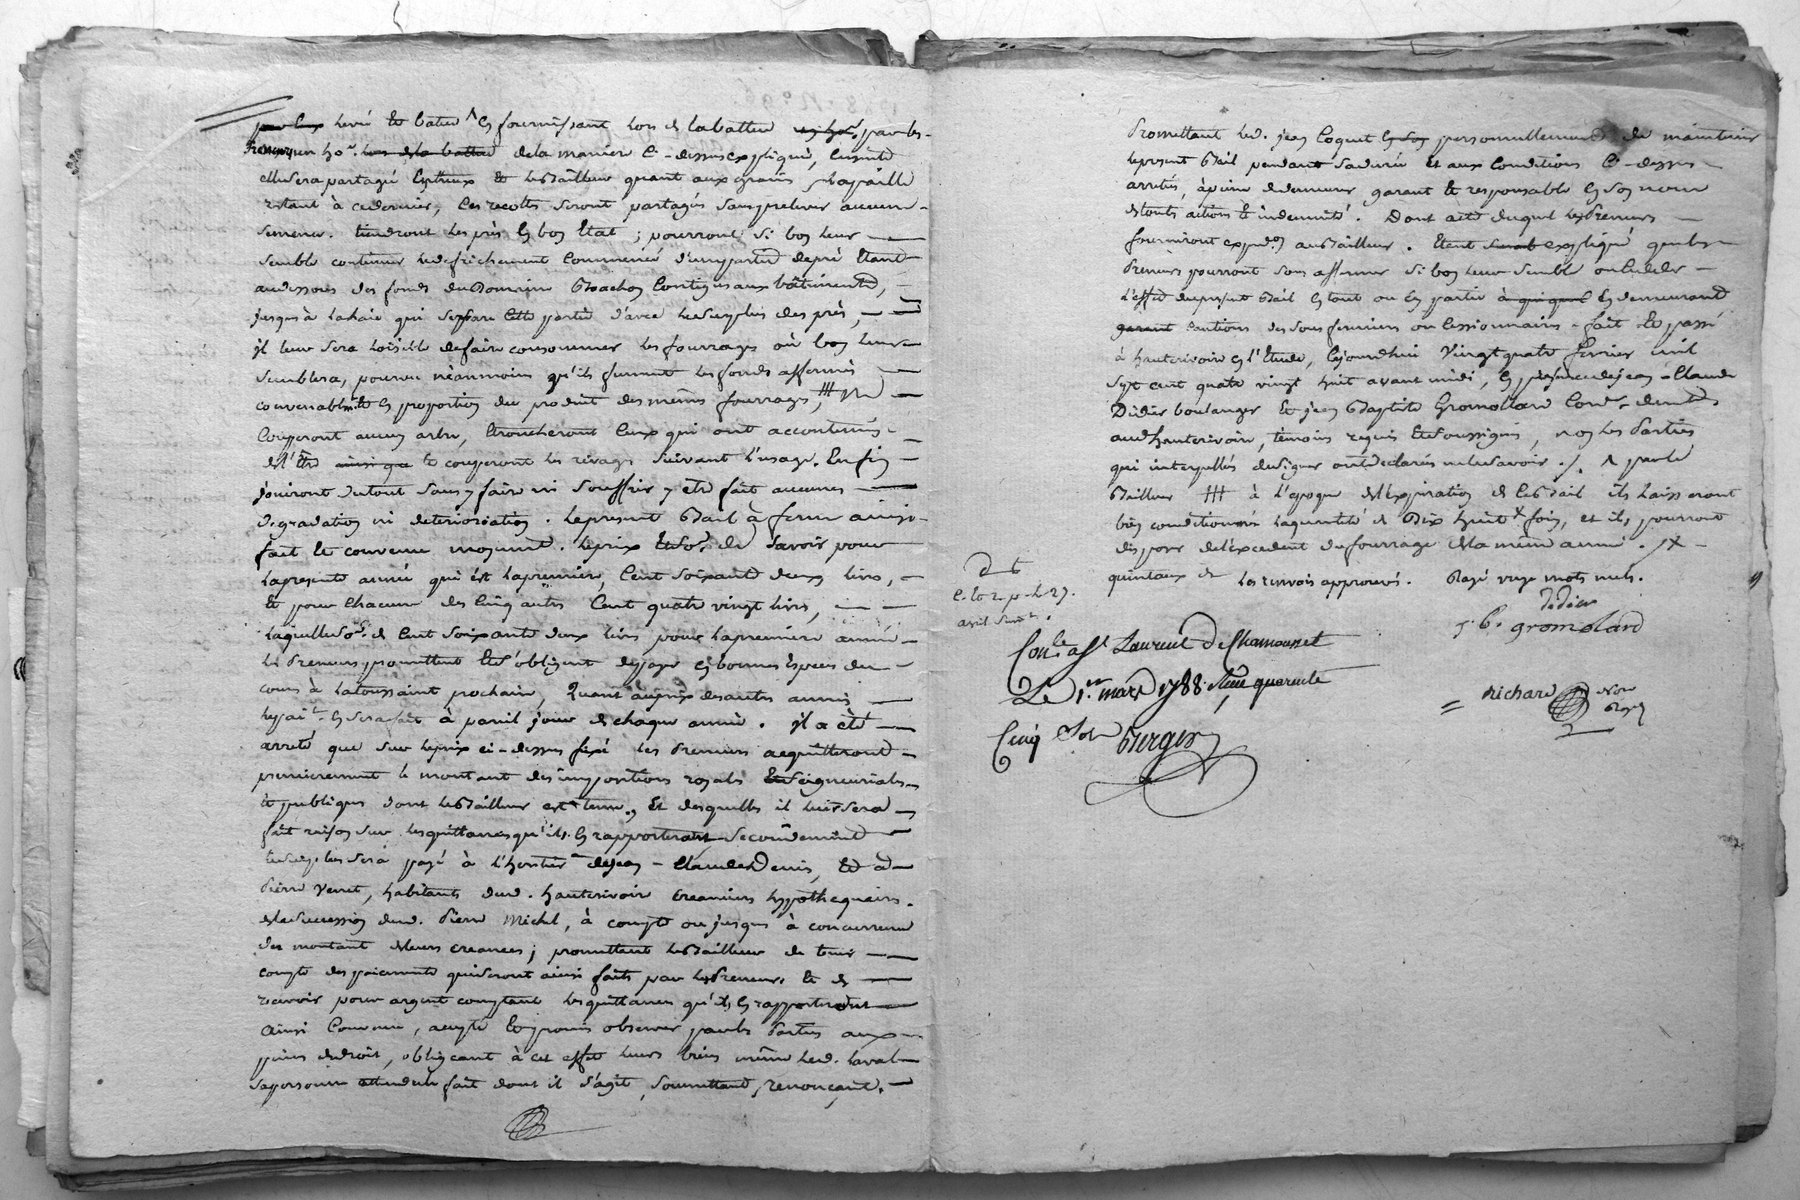 levée et battue ^ en fournissant lors de la batture par les
preneurs un ho.e de la maniere ci-dessus expliquée, ensuite
elle sera partagée entr'eux et le Bailleur quant aux grains, la paille
restant à ce dernier, les recoltes seront partagées sans prelever aucune
semence. tiendront les prés en bon Etat ; pourront si bon leur
semble continuer le defrichement commencé d'une partie de pré Etant
au dessous des fonds du Domaine Bachon contigus aux bâtiments,
jusqu'à la haie qui separe cette partie d'avec le surplus des prés,
il leur sera loisible de faire consommer les fourrages où bon leur
semblera, pourvu néanmoins qu'ils fument les fonds affermés
convenablem.t et en proportion du produit des mêmes fourrages, ### Ne
couperont aucun arbre, Etroncheront ceux qui ont accoutumés
de l'être ainsi que et couperont les rivages suivant l'usage. Enfin
jouiront du tout sans y faire ni souffrir y etre fait aucunes
degradation ni deterioration. le present Bail à ferme ainsi
fait et convenu moyennt. le prix et so.e de savoir pour
la presente année qui est la premiere, Cent soixante deux livres,
Et pour chacune des cinq autres Cent quatre vingt livres,
laquelle so.e de cent soixante deux livres pour la premiere année
les Preneurs promettent et s'obligent de payer en bonnes especes du
cours à la toussaint prochaine, Quant au prix des autres années
le paie.t en sera fait à pareil jour de chaque année. il a été
arreté que sur le prix ci-dessus fixé les Preneurs acquitteront
premierement le montant des impositions royales et seigneuriales
et publiques dont le Bailleur est tenu, et desquelles il leur sera
fait raison sur les quittances qu'ils en rapporteront secondement
le surplus sera payé à l'heritier de Jean-Claude Denis, et à
Pierre Venet, habitants dud. hauterivoire creanciers hypothequaires
de la succession dud. Pierre Michel, à compte ou jusques à concurrence
du montant de leurs creances ; promettant le Bailleur de tenir
compte des paiements qui seront ainsi faits par les Preneurs et de
recevoir pour argent comptant les quittances qu'ils en rapporteront
Ainsi Convenu, accepté et promis observer par les Parties aux
peines de droit, obligeant à cet effet leurs biens même led. laval
sa personne attendu le fait dont il s'agit, soumettant, renonçant,
Promettant led. jean Coquet personnellement de maintenir
le present Bail pendant sa durée et aux conditions ci-dessus
arretées, à peine de demeurer garant et responsable en son nom
de toutes actions et indemnité. Dont acte duquel les Preneurs
fourniront expedon. au Bailleur. Etant expliqué que les
Preneurs pourront sous affermer si bon leur semble ou ceder
l'effet du present Bail en tout ou en partie à qui que en demeurant
garant cautions des sous fermiers ou cessionnaires. fait et passé
à hauterivoire en l'Etude, cejourdhui vingt quatre fevrier mil
sept cent quatre vingt huit avant midi, en presence de jean-Claude
Didier boulanger et jean Baptiste Gromollard demeur.ts
aud. hauterivoire, temoins requis et soussignés, non les Parties
qui interpellées de signer ont declarées ne le savoir ./. ^ par le
Bailleur ### à l'epoque de l'Expiration de ce Bail ils laisseront
bien conditionnée la quantité de Dix huit x foin, et ils pourront
disposer de l'excedent du fourrage de la même année. /x
quintaux de les renvois approuvés. Rayé mots nuls.
Didier
J b. gromolard
avril
Con.le aff. Laurent D Chamousset
Le 1.er mars 1788. Reçu quarente
Cinq Sols Berger
richard Not
Roy